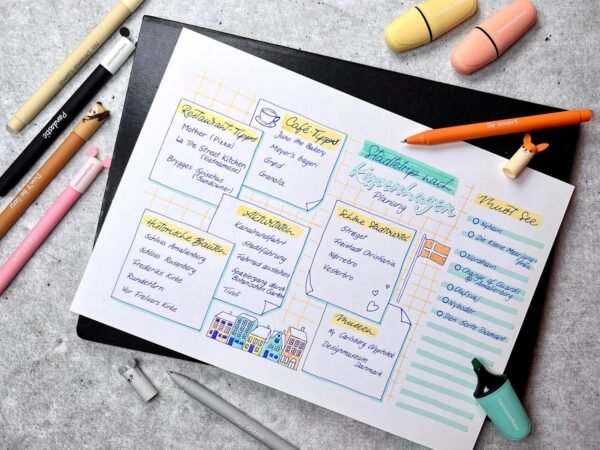 Restaurant-Tipps
Mother (Pizza)
La The Street Kitchen
(Vietnamese)
Brygges Spisehus
(Sundowner)
Café-Tipps
Juno the Bakery
Meyer's Bageri
Grød
Granola
Städtetrip nach
Kopenhagen
Planung
Historische Bauten
Schloss Amalienborg
Schloss Rosenborg
Frederiks Kirke
Rundetårn
Vor Frelsers Kirke
Aktivitäten
Kanalrundfahrt
Stadtführung
Fahrrad ausleihen
Spaziergang durch
Botanischen Garten
Tivoli
Schöne Stadtviertel
Strøget
Freistadt Christiania
Nørrebro
Vesterbro
Museen
Ny Carlsberg Glyptotek
Designmuseum
Danmark
Must See
Nyhavn
Die kleine Meerjungfrau
Nordhavn
Change of Guards
@Amalienborg
Nyboder
Den Sorte Diamant
Pandastic
Be smart